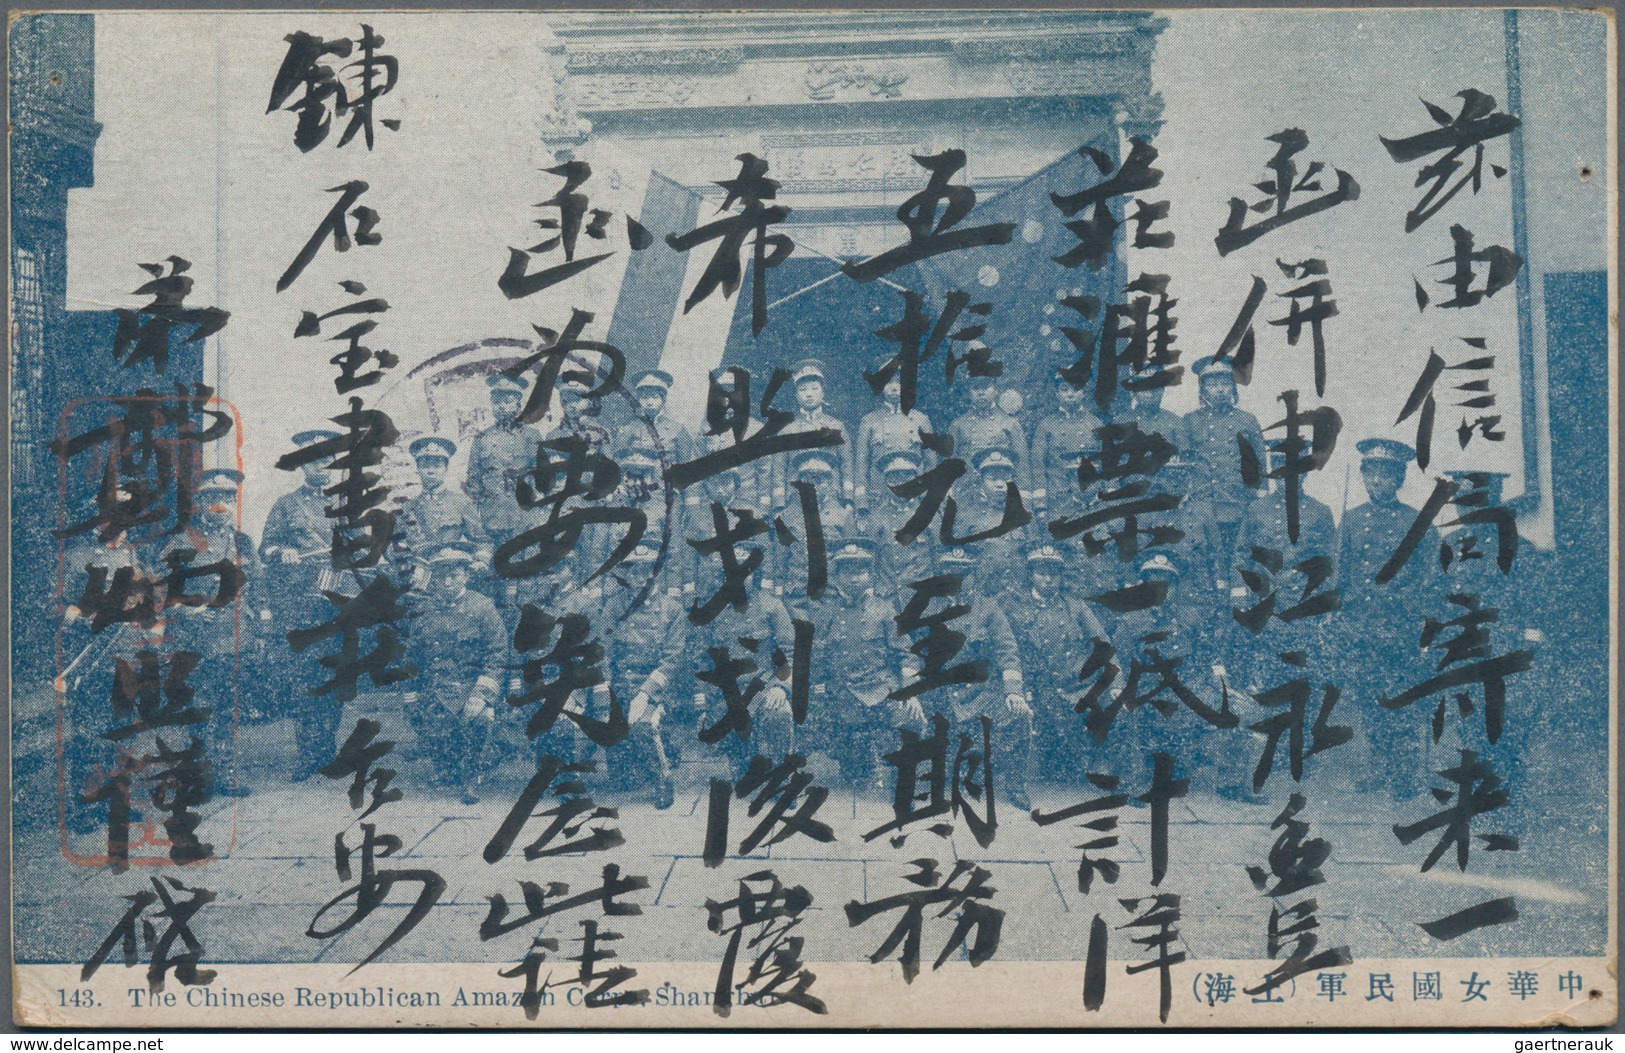 茲由信局寄来一
函併申江永豊
莊滙票一紙計洋
五拾元至期務
希照划划後覆
函为要免念此請
鍊石宝書莊台安
弟 炳照謹啓
中華女國民軍（上海）
143. The Chinese Republican Amazon Corps, Shanghai
delcampe.net
gaertnerauk